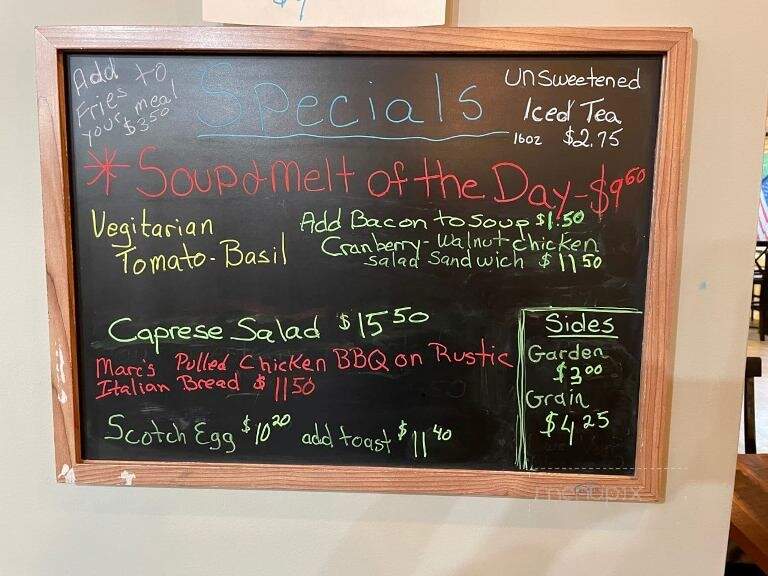 Add to
Fries
your meal
$3.50
Specials
UnSweetened
Iced Tea
16oz $2.75
* Soup & Melt of the Day - $9.60
Vegitarian
Tomato-Basil
Add Bacon to Soup $1.50
Cranberry-Walnut Chicken
Salad Sandwich $11.50
Caprese Salad $15.50
Marc's Pulled Chicken BBQ on Rustic
Italian Bread $11.50
Scotch Egg $10.20 add toast $11.40
Sides
Garden
$3.00
Grain
$4.25
menupix